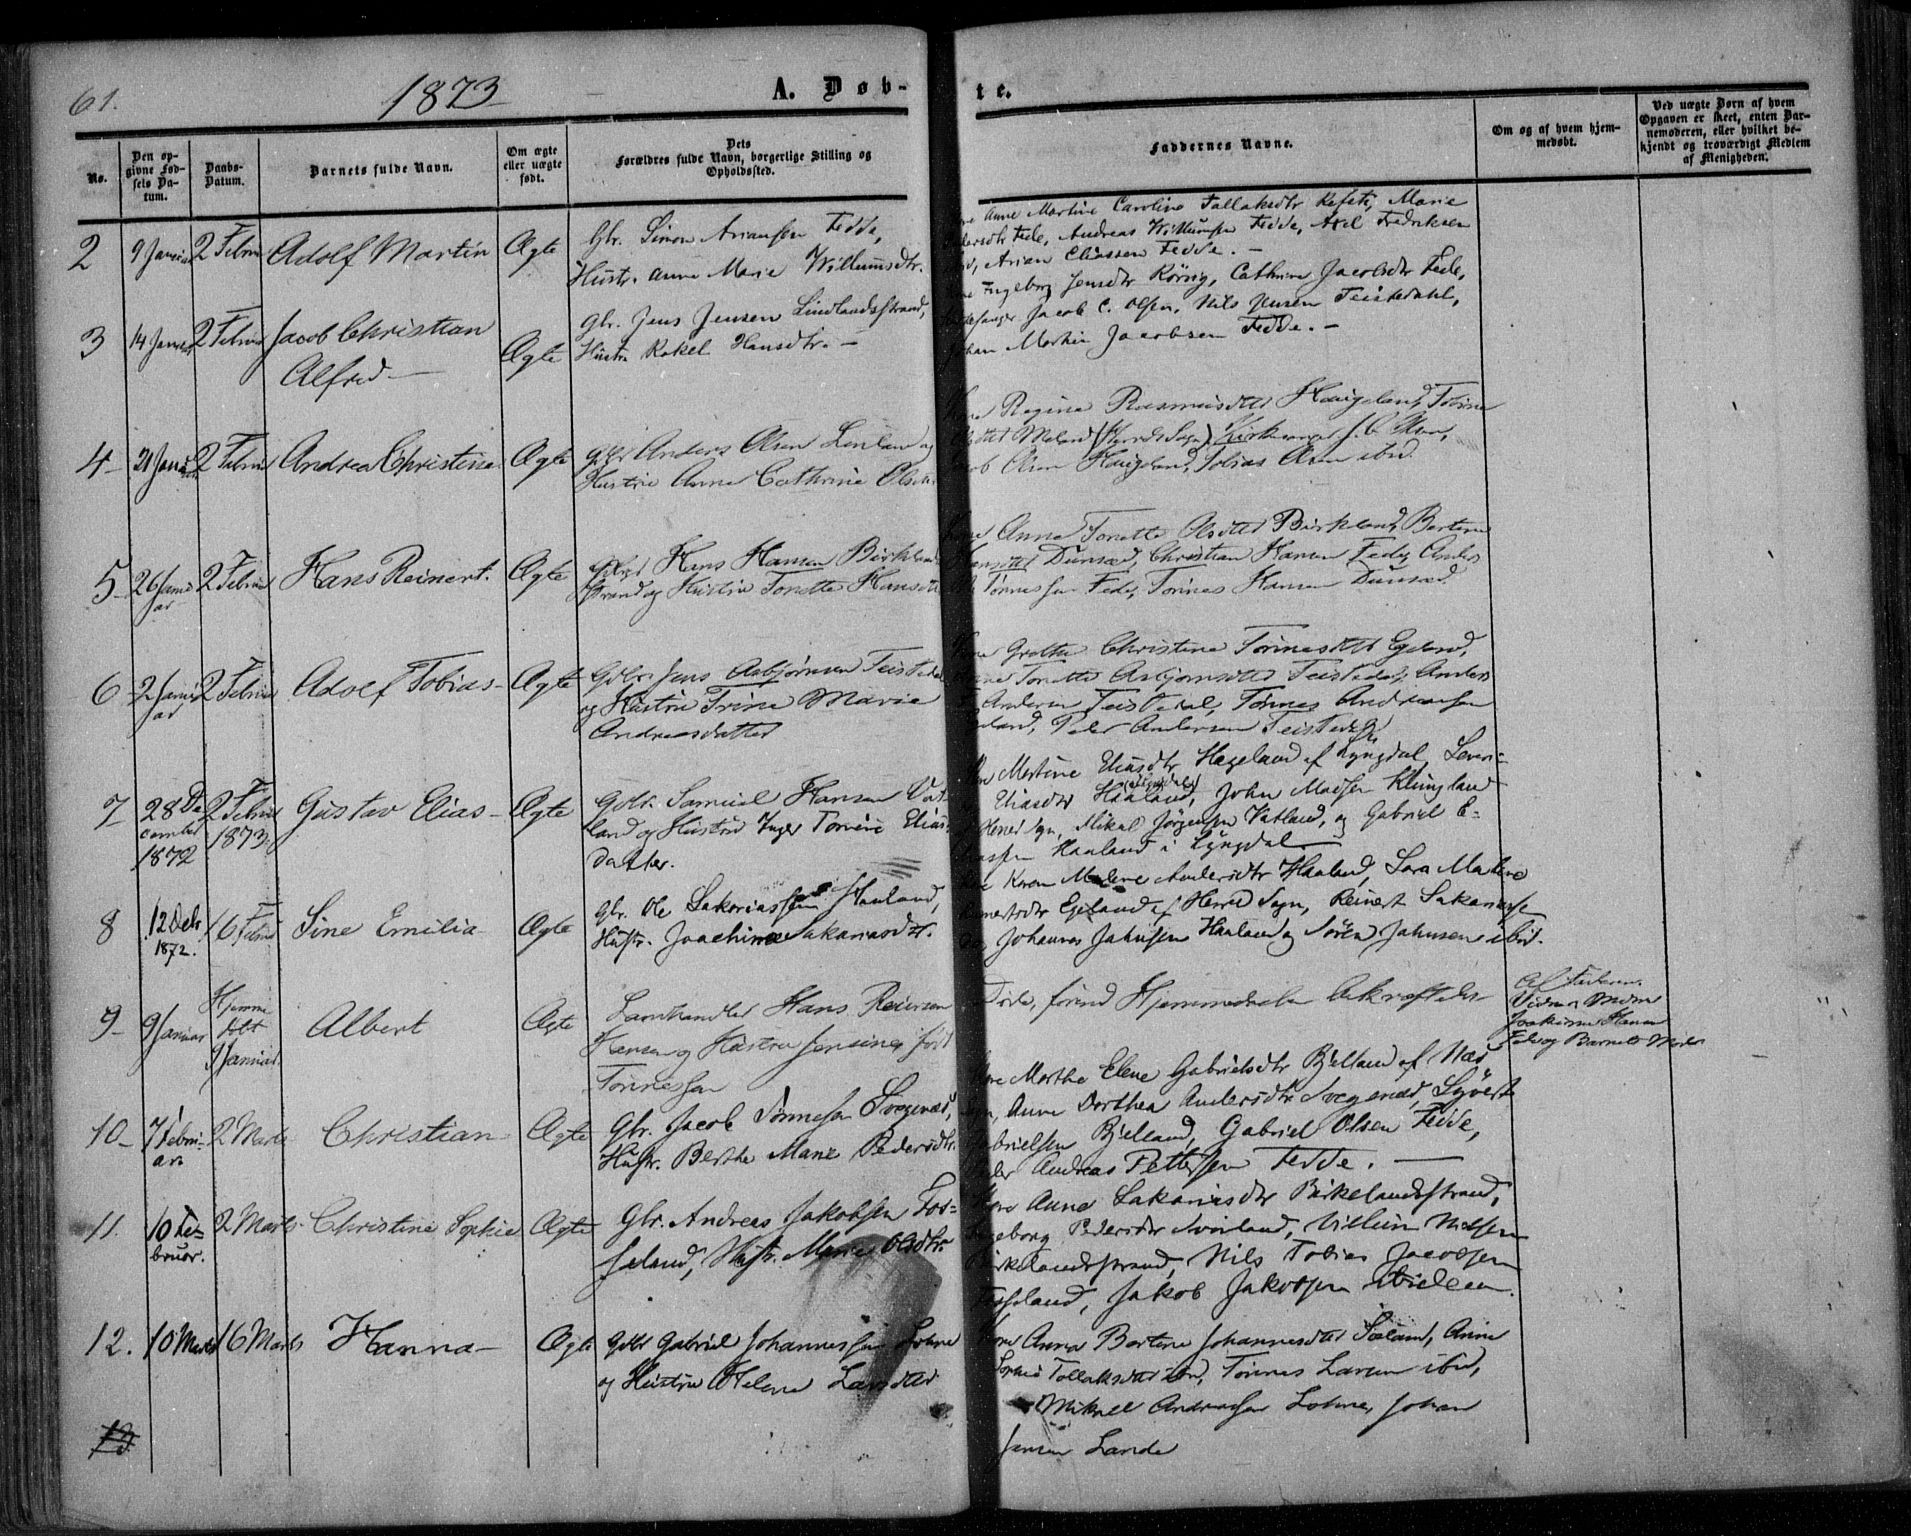 61.
1873
A. Døb-
te.
No.
Den op-
givne Fød-
sels Da-
tum.
Daabs-
Datum.
Barnets fulde Navn.
Om ægte
eller uægte
født.
Dets
Forældres fulde Navn, borgerlige Stilling og
Opholdssted.
Faddernes Navne.
Om og af hvem hjem-
medøbt.
Ved uægte Børn af hvem
Opgaven er skeet, enten Bar-
nemoderen, eller hvilket be-
kjendt og troværdigt Medlem
af Menigheden.
2 9 Januar 2 Febru Adolf Martin Ægte
Gbr. Simon Ariansen Fedde,
Hustr. Anne Marie Willumsdtr.
Anne Martine Caroline Tallaksdtr Refsti, Marie
Fede, Andreas Willumsen Fedde, Axel Fredriksen
Arian Eliassen Fedde.
3 14 Januar 2 Febru Jacob Christian
Alfred Ægte
Gbr. Jens Jensen Lindlandsstrand,
Hustr. Rakel Hansdtr.
Ingeborg Jensdtr Rörvig, Cathrine Jacobsdtr Fede,
Jacob C. Olsen, Nils Jensen Teistedahl,
Johan Martin Jacobsen Fedde.
4 21 Janu 2 Febru Andrea Christine Ægte
Gbr Anders Olsen Lenland og
Hustrue Anne Cathrine Olsdtr
Regine Rasmusdtter Haugeland, Tobine
Meland (Herreds Sogn)
Olsen Haugeland, Tobias Olsen ibid.
5 26 Janu
ar 2 Febru Hans Reinert. Ægte
Hans Hansen Birkland
strand og Hustru Tonette Hansdtr
Anna Tonette Olsdtter Birkland, Bertine
Hansdtter Dunsæd, Christian Hansen Fede, Anders
Tønnessen Fede, Tønnes Hansen Dunsæd
6 2 Janu
ar 2 Febru Adolf Tobias Ægte
Gdbr. Jens Asbjørnsen Teistedal
og Hustru Trine Marie
Andreasdatter
Grethe Christine Tønnesdtr Egeland,
Tonette Asbjørnsdtter Teistedal, Anders
Andersen Teistedal, Tønnes Andreassen
Peder Andersen Teistedal
7 28 De
cember
1872 2 Febru
1873 Gustav Elias Ægte
Gdbr. Samuel Hansen Vat-
land og Hustru Inger Tomine Elias
datter.
Martine Eliasdtr Hægeland af Lyngdal, Severi-
Eliasdtr Haaland, John Madsen Klungland
Herred Sogn, Mikal Jørgensen Vatland, og Gabriel E-
liassen Haaland i Lyngdal
8 12 Debr
1872. 16 Febru Sine Emilia Ægte
Gbr. Ole Sakariassen Haaland,
Hustr. Joachime Sakariasdtr.
Karen Malene Andersdtr Haaland, Sara Martine
Reinertsdtr Egeland af Herred Sogn, Reinert Sakariassen
Johannes Jahnsen Haaland og Sören Jahnsen ibid.
9 9 Januar Hjemme
døbt
9 Januar. Albert Ægte
Hans Reiersen
Hansen og Hustru Jensine, født
Tønnessen
Døde, forend Hjemmedaaben bekræftedes
Af Fuldmn.
Joakime Hansen
Fede og Barnets Moder
10 7 Febru-
ari 2 Marts Christian Ægte
Gbr. Jacob Tönnesen Svegenæs,
Hustr. Berthe Marie Pedersdtr.
Marthe Elene Gabrielsdtr Bjelland af Næs
Sogn, Anne Dorthea Andersdtr Svegenæs, Syvert
Gabrielsen Bjelland, Gabriel Olsen Fedde,
Peder Andreas Pettersen Fedde.
11. 10 Fe-
bruar. 2 Marts. Christine Sophie Ægte
Gbr. Andreas Jakobsen Fos-
seland, Hustr. Marie Olsdtr.
Anne Sakariasdtr Birkelandsstrand,
Ingeborg Pedersdtr Svindland, Villum Nielsen
Birkelandsstrand, Nils Tobias Jacobsen
Fosseland, Jakob Jakobsen ibidem.
12. 10 Marts 16 Marts Hanna Ægte
Gdbr Gabriel Johannessen Lohne
og Hustru Helene Larsdtter
Anna Bertine Johannesdtter Sæland, Anne
Sophie Tollaksdtter ibid, Tønnes Larsen ibid,
Mikael Andreassen Lohne, Johan
Jensen Lande
13